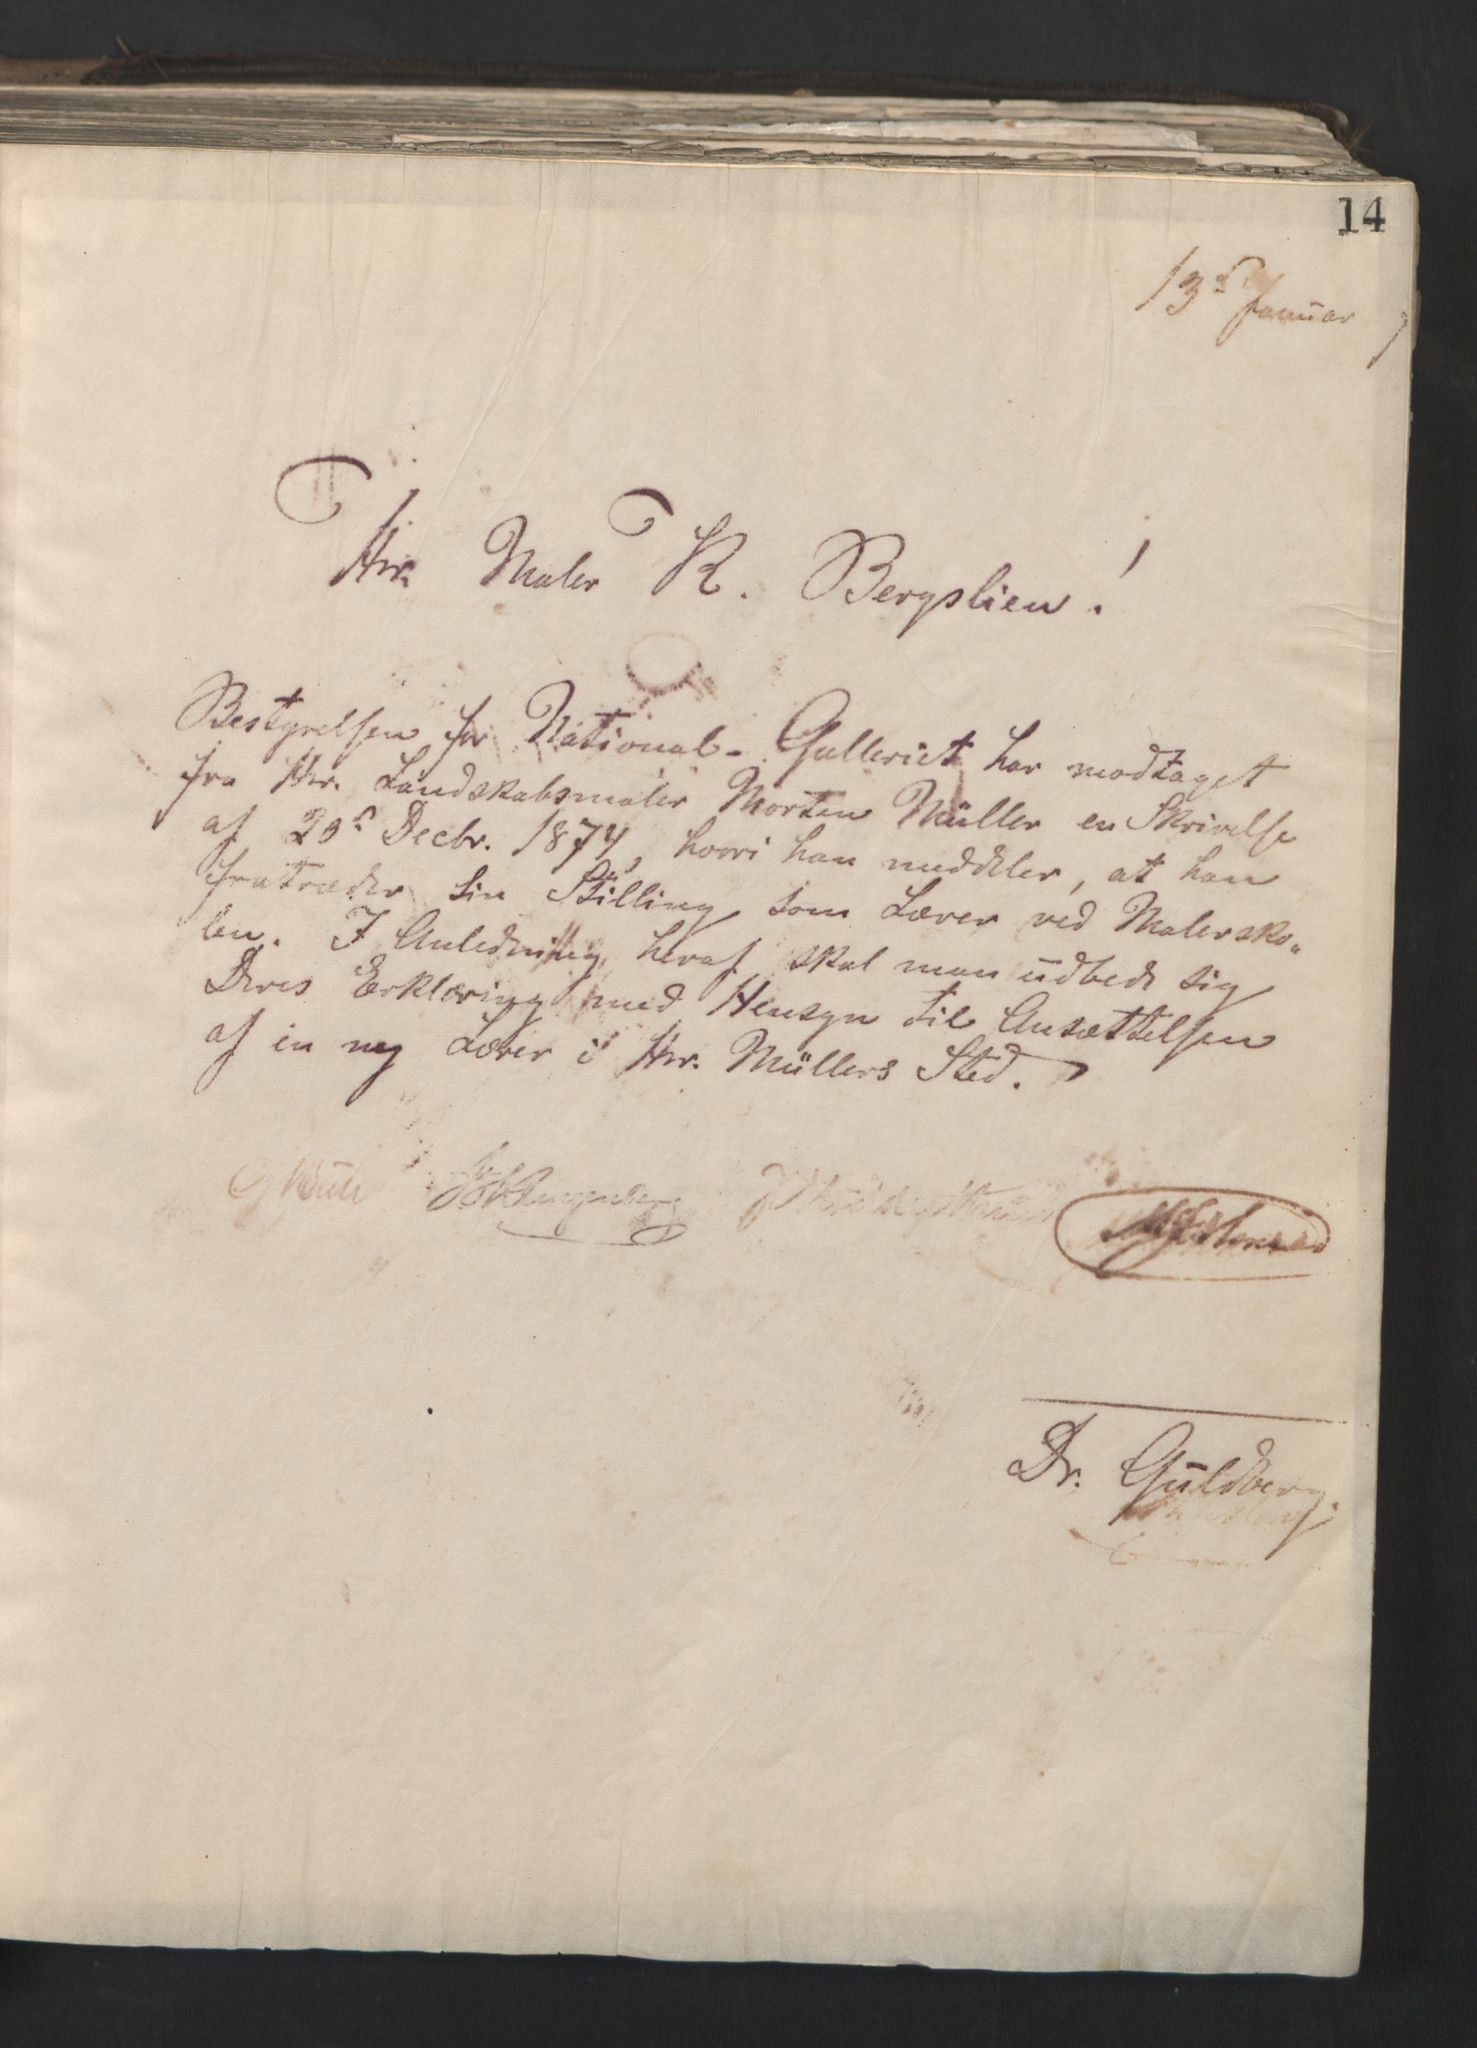 14
13de Januar
Hr. Maler K. Bergslien!
Bestyrelsen for National-Galleriet har modtaget
fra Hr. Landskabsmaler Morten Müller en Skrivelse
af 29de Decbr. 1874, hvori han meddeler, at han
fratræder sin Stilling som Lærer ved Malersko-
len. I Anledning heraf skal man udbede sig
Deres Erklæring med Hensyn til Ansættelsen
af en ny Lærer i Hr. Müllers Sted.
Dr. Guldberg.